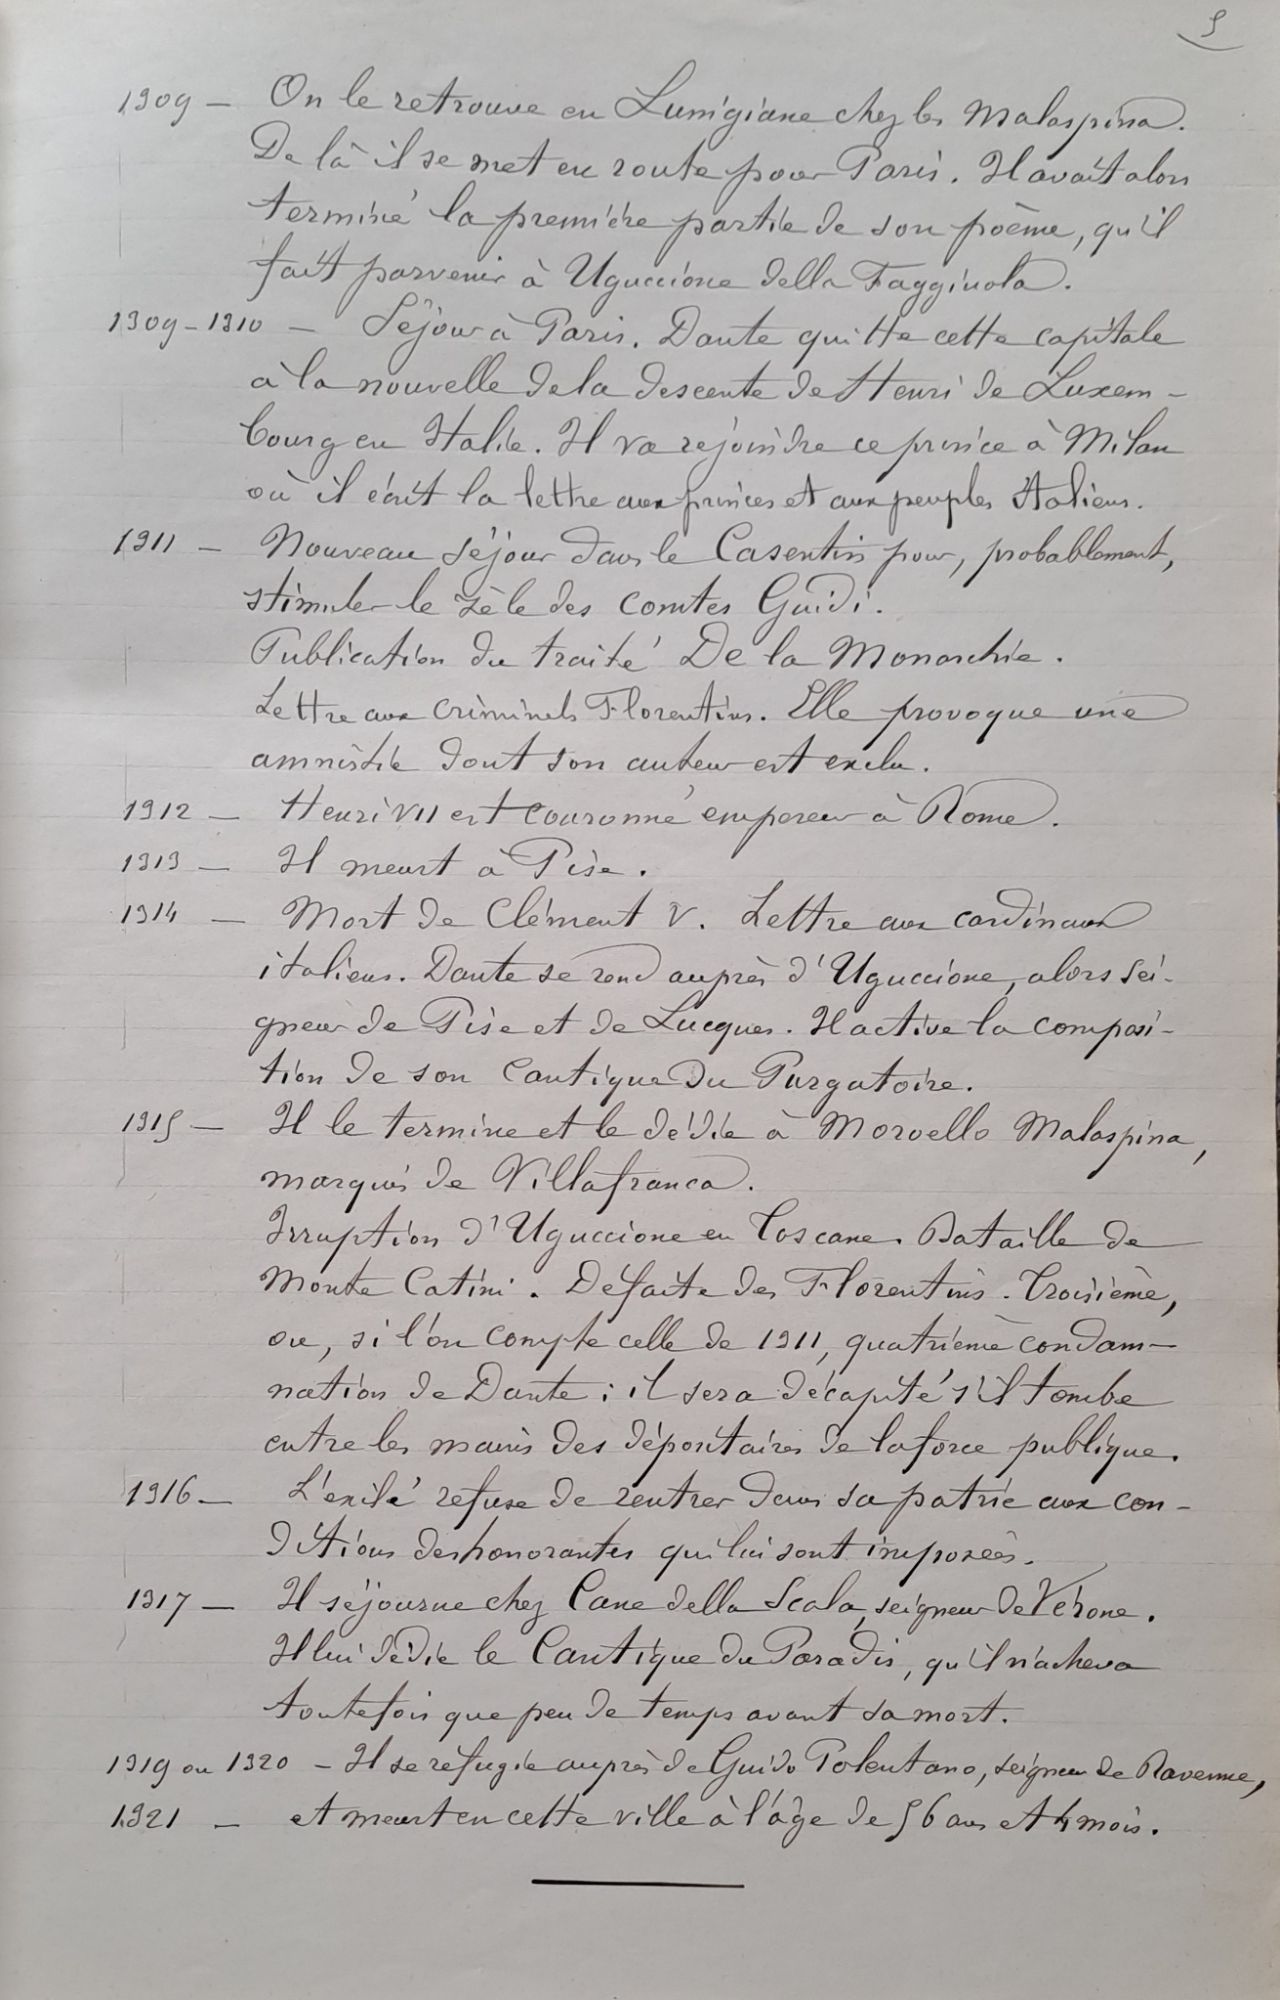 5
1309 — On le retrouve en Lunigiane chez les Malaspina.
De là il se met en route pour Paris. Il avait alors
terminé la première partie de son poème, qu'il
fait parvenir à Uguccione della Fagginola.
1309-1310 — Séjour à Paris. Dante quitte cette capitale
à la nouvelle de la descente de Henri de Luxem-
bourg en Italie. Il va rejoindre ce prince à Milan
où il écrit la lettre aux princes et aux peuples italiens.
1311 — Nouveau séjour dans le Casentin pour, probablement,
stimuler le zèle des comtes Guidi.
Publication du traité De la Monarchie.
Lettre aux criminels Florentins. Elle provoque une
amnistie dont son auteur est exclu.
1312 — Henri VII est couronné empereur à Rome.
1313 — Il meurt à Pise.
1314 — Mort de Clément V. Lettre aux cardinaux
italiens. Dante se rend auprès d'Uguccione, alors sei-
gneur de Pise et de Lucques. Il active la composi-
tion de son Cantique du Purgatoire.
1315 — Il le termine et le dédie à Moroello Malaspina,
marquis de Villafranca.
Irruption d'Uguccione en Toscane. Bataille de
Monte Catini. Défaite des Florentins. Troisième,
ou, si l'on compte celle de 1311, quatrième condam-
nation de Dante : il sera décapité s'il tombe
entre les mains des dépositaires de la force publique.
1316 — L'exilé refuse de rentrer dans sa patrie aux con-
ditions deshonorantes qui lui sont imposées.
1317 — Il séjourne chez Cane della Scala, seigneur de Vérone.
Il lui dédie le Cantique du Paradis, qu'il n'acheva
toutefois que peu de temps avant sa mort.
1319 ou 1320 — Il se réfugie auprès de Guido Polentano, seigneur de Ravenne,
1321 — et meurt en cette ville à l'âge de 56 ans et 4 mois.